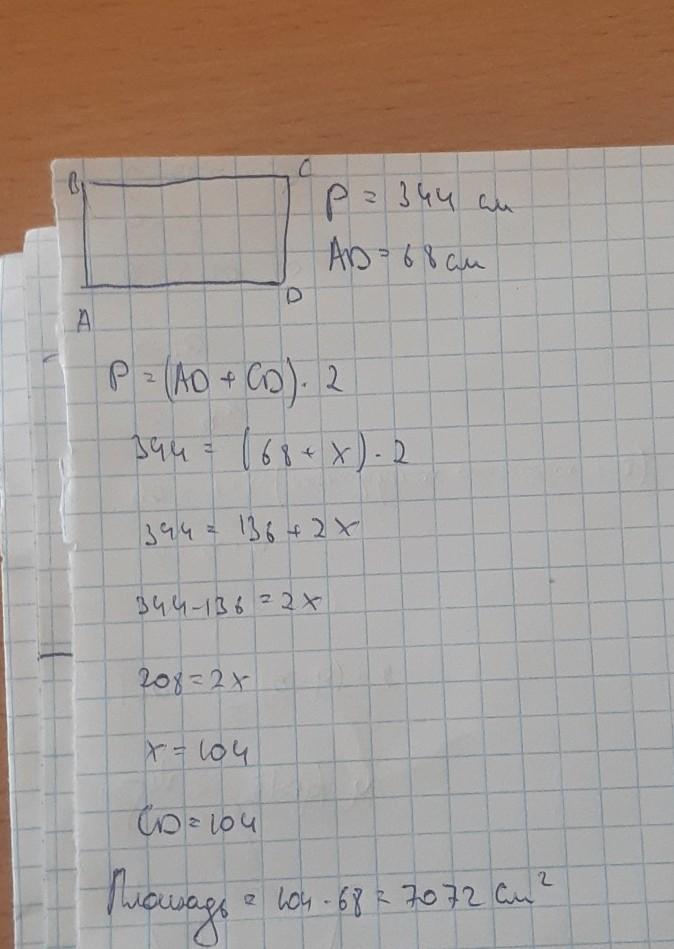 B C
P = 344 см
AD = 68 см
A D
P = (AD + CD) · 2
344 = (68 + x) · 2
344 = 136 + 2x
344 - 136 = 2x
208 = 2x
x = 104
CD = 104
Площадь = 104 · 68 = 7072 см²